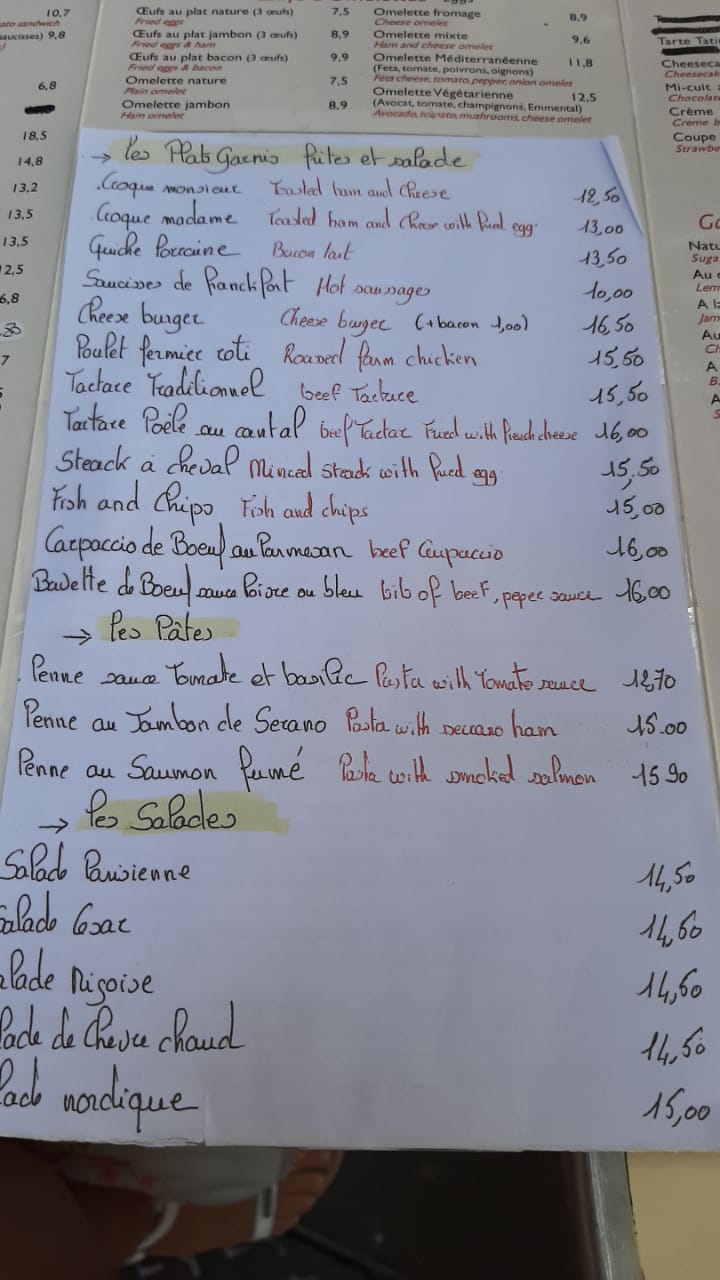 10,7
ato sandwich
saucisses) 9,8
6,8
18,5
14,8
13,2
13,5
13,5
2,5
6,8
7
Œufs au plat nature (3 œufs) 7,5
Fried eggs
Œufs au plat jambon (3 œufs) 8,9
Fried eggs & ham
Œufs au plat bacon (3 œufs) 9,9
Fried eggs & bacon
Omelette nature 7,5
Plain omelet
Omelette jambon 8,9
Ham omelet
Omelette fromage 8,9
Cheese omelet
Omelette mixte 9,6
Ham and cheese omelet
Omelette Méditerranéenne 11,8
(Feta, tomate, poivrons, oignons)
Feta cheese, tomato, pepper, onion omelet
Omelette Végétarienne 12,5
(Avocat, tomate, champignons, Emmental)
Avocado, tomato, mushrooms, cheese omelet
→ Les Plats Garnis frites et salade
Croque monsieur Toasted ham and Cheese 12,50
Croque madame Toasted ham and Cheese with fried egg 13,00
Quiche Lorraine Bacon tart 13,50
Saucisses de Franckfort Hot sausages 10,00
Cheese burger Cheese burger (+bacon 1,00) 16,50
Poulet fermier roti Roased farm chicken 15,50
Tartare Traditionnel beef Tartare 15,50
Tartare Poêlé au cantal beef Tartar Fried with french cheese 16,00
Steack à cheval Minced Steack with fried egg 15,50
Fish and Chips Fish and chips 15,00
Carpaccio de Boeuf au Parmesan beef Carpaccio 16,00
Bavette de Boeuf sauce Poivre ou bleu bib of beef, peper sauce 16,00
→ Les Pâtes
Penne sauce Tomate et basilic Pasta with Tomato sauce 12,70
Penne au Jambon de Serano Pasta with serrano ham 15.00
Penne au Saumon fumé Pasta with smoked salmon 15 90
→ Les Salades
Salade Parisienne 14,50
Salade Cesar 14,60
alade Niçoise 14,60
lade de Chevre chaud 14,50
lade nordique 15,00
Tarte Tati
Cheeseca
Cheesecak
Mi-cuit
Chocolat
Crème
Creme b
Coupe
Strawbe
Natu
Suga
Au
Lem
A la
Jam
Au
Ch
A
B
A
S